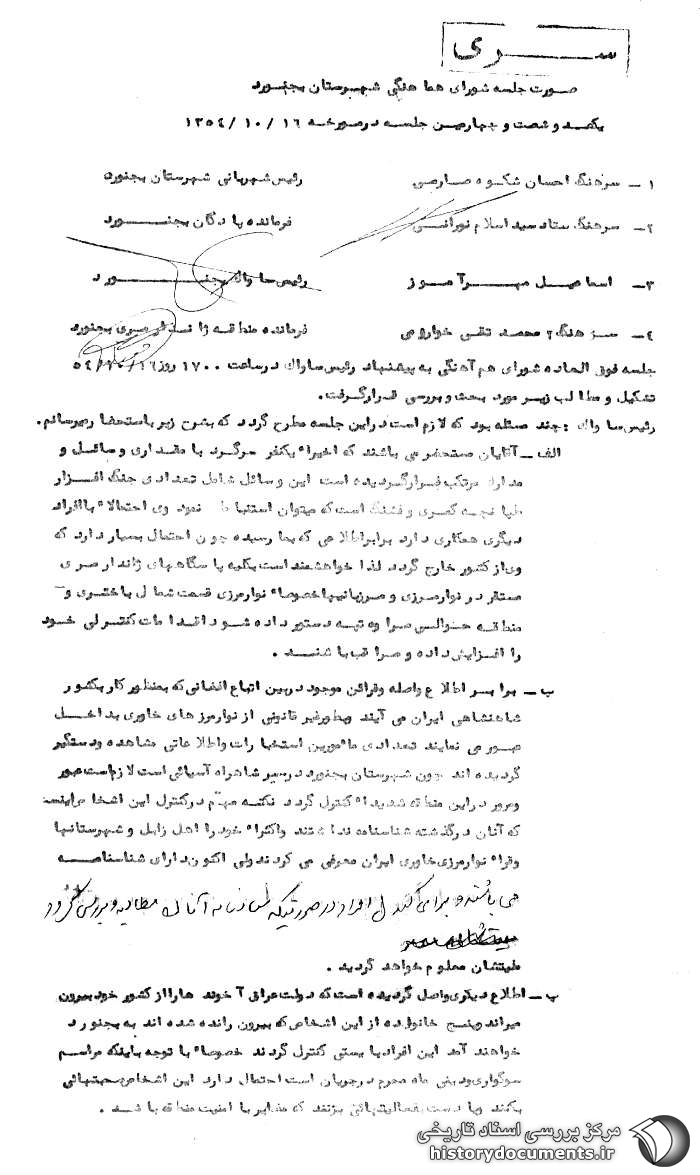 ســـــری
صورت جلسه شورای هماهنگی شهرستان بجنورد
یکصد و شصت و چهارمین جلسه در مورخه ۱۶ /۱۰ /۱۳۵۴
۱ – سرهنگ احسان شکوه صارمی رئیس شهربانی شهرستان بجنورد
۲- سرهنگ ستاد سید اسلام نورانی فرمانده پادگان بجنورد
۳- اسماعیل مهرآموز رئیس ساواک بجنورد
۴- سرهنگ ۲ محمد تقی خوارومی فرمانده منطقه ژاندارمری بجنورد
جلسه فوق العاده شورای هم آهنگی به پیشنهاد رئیس ساواک در ساعت ۱۷۰۰ روز ۵۴/۱۰/۱۶
تشکیل و مطالب زیر مورد بحث و بررسی قرار گرفت.
رئیس ساواک : چند مسئله بود که لازم است در این جلسه مطرح گردد که بشرح زیر باستحضار میرسانم.
الف – آقایان مستحضر می باشند که اخیرا" یکنفر سرگرد با مقداری وسائل و
مدارک مرتکب فرار گردیده است این وسائل شامل تعدادی جنگ افزار
طپانچه کمری و فشنگ است که میتوان استنباط نمود وی احتمالا" با افراد
دیگری همکاری دارد برابر اطلاعی که بما رسیده چون احتمال بسیار دارد که
وی از کشور خارج گردد لذا خواهشمند است بکلیه پاسگاههای ژاندارمری
مستقر در نوار مرزی و مرزبانیها خصوصا" نوار مرزی قسمت شمال باختری و
منطقه حوالی مراوه تپه دستور داده شود اقدامات کنترلی خود
را افزایش داده و مراقب باشند .
ب – برابر اطلاع واصله و قرائن موجود در بین اتباع افغانی که بمنظور کار بکشور
شاهنشاهی ایران می آیند و بطور غیر قانونی از نوار مرزهای خاوری بداخل
عبور می نمایند تعدادی مامورین استخبارات و اطلاعاتی مشاهده و دستگیر
گردیده اند چون شهرستان بجنورد در مسیر شاهراه آسیائی است لازم است عبور
و مرور در این منطقه شدیدا" کنترل گردد نکته مهم در کنترل این اشخاص اینست
که آنان در گذشته شناسنامه نداشتند و اکثرا" خود را اهل زابل و شهرستانها
و قراء نوار مرزی خاوری ایران معرفی می کردند ولی اکنون دارای شناسنامه
می باشند و برای کنترل افراد در صورتیکه شناسنامه آنان مطالبه و بررسی گردد
طیتشان معلوم خواهد گردید .
پ – اطلاع دیگری واصل گردیده است که دولت عراق آخوندها را از کشور خود بیرون
میراند و پنج خانواده از این اشخاص که بیرون رانده شده اند به بجنورد
خواهند آمد این افراد بایستی کنترل گردند خصوصا" با توجه باینکه مراسم
سوگواری و دینی ماه محرم در جریان است احتمال دارد این اشخاص صحبتهائی
بکنند و یا دست بفعالیتهائی بزنند که مغایر با امنیت منطقه باشد .
مرکز بررسی اسناد تاریخی
historydocuments.ir